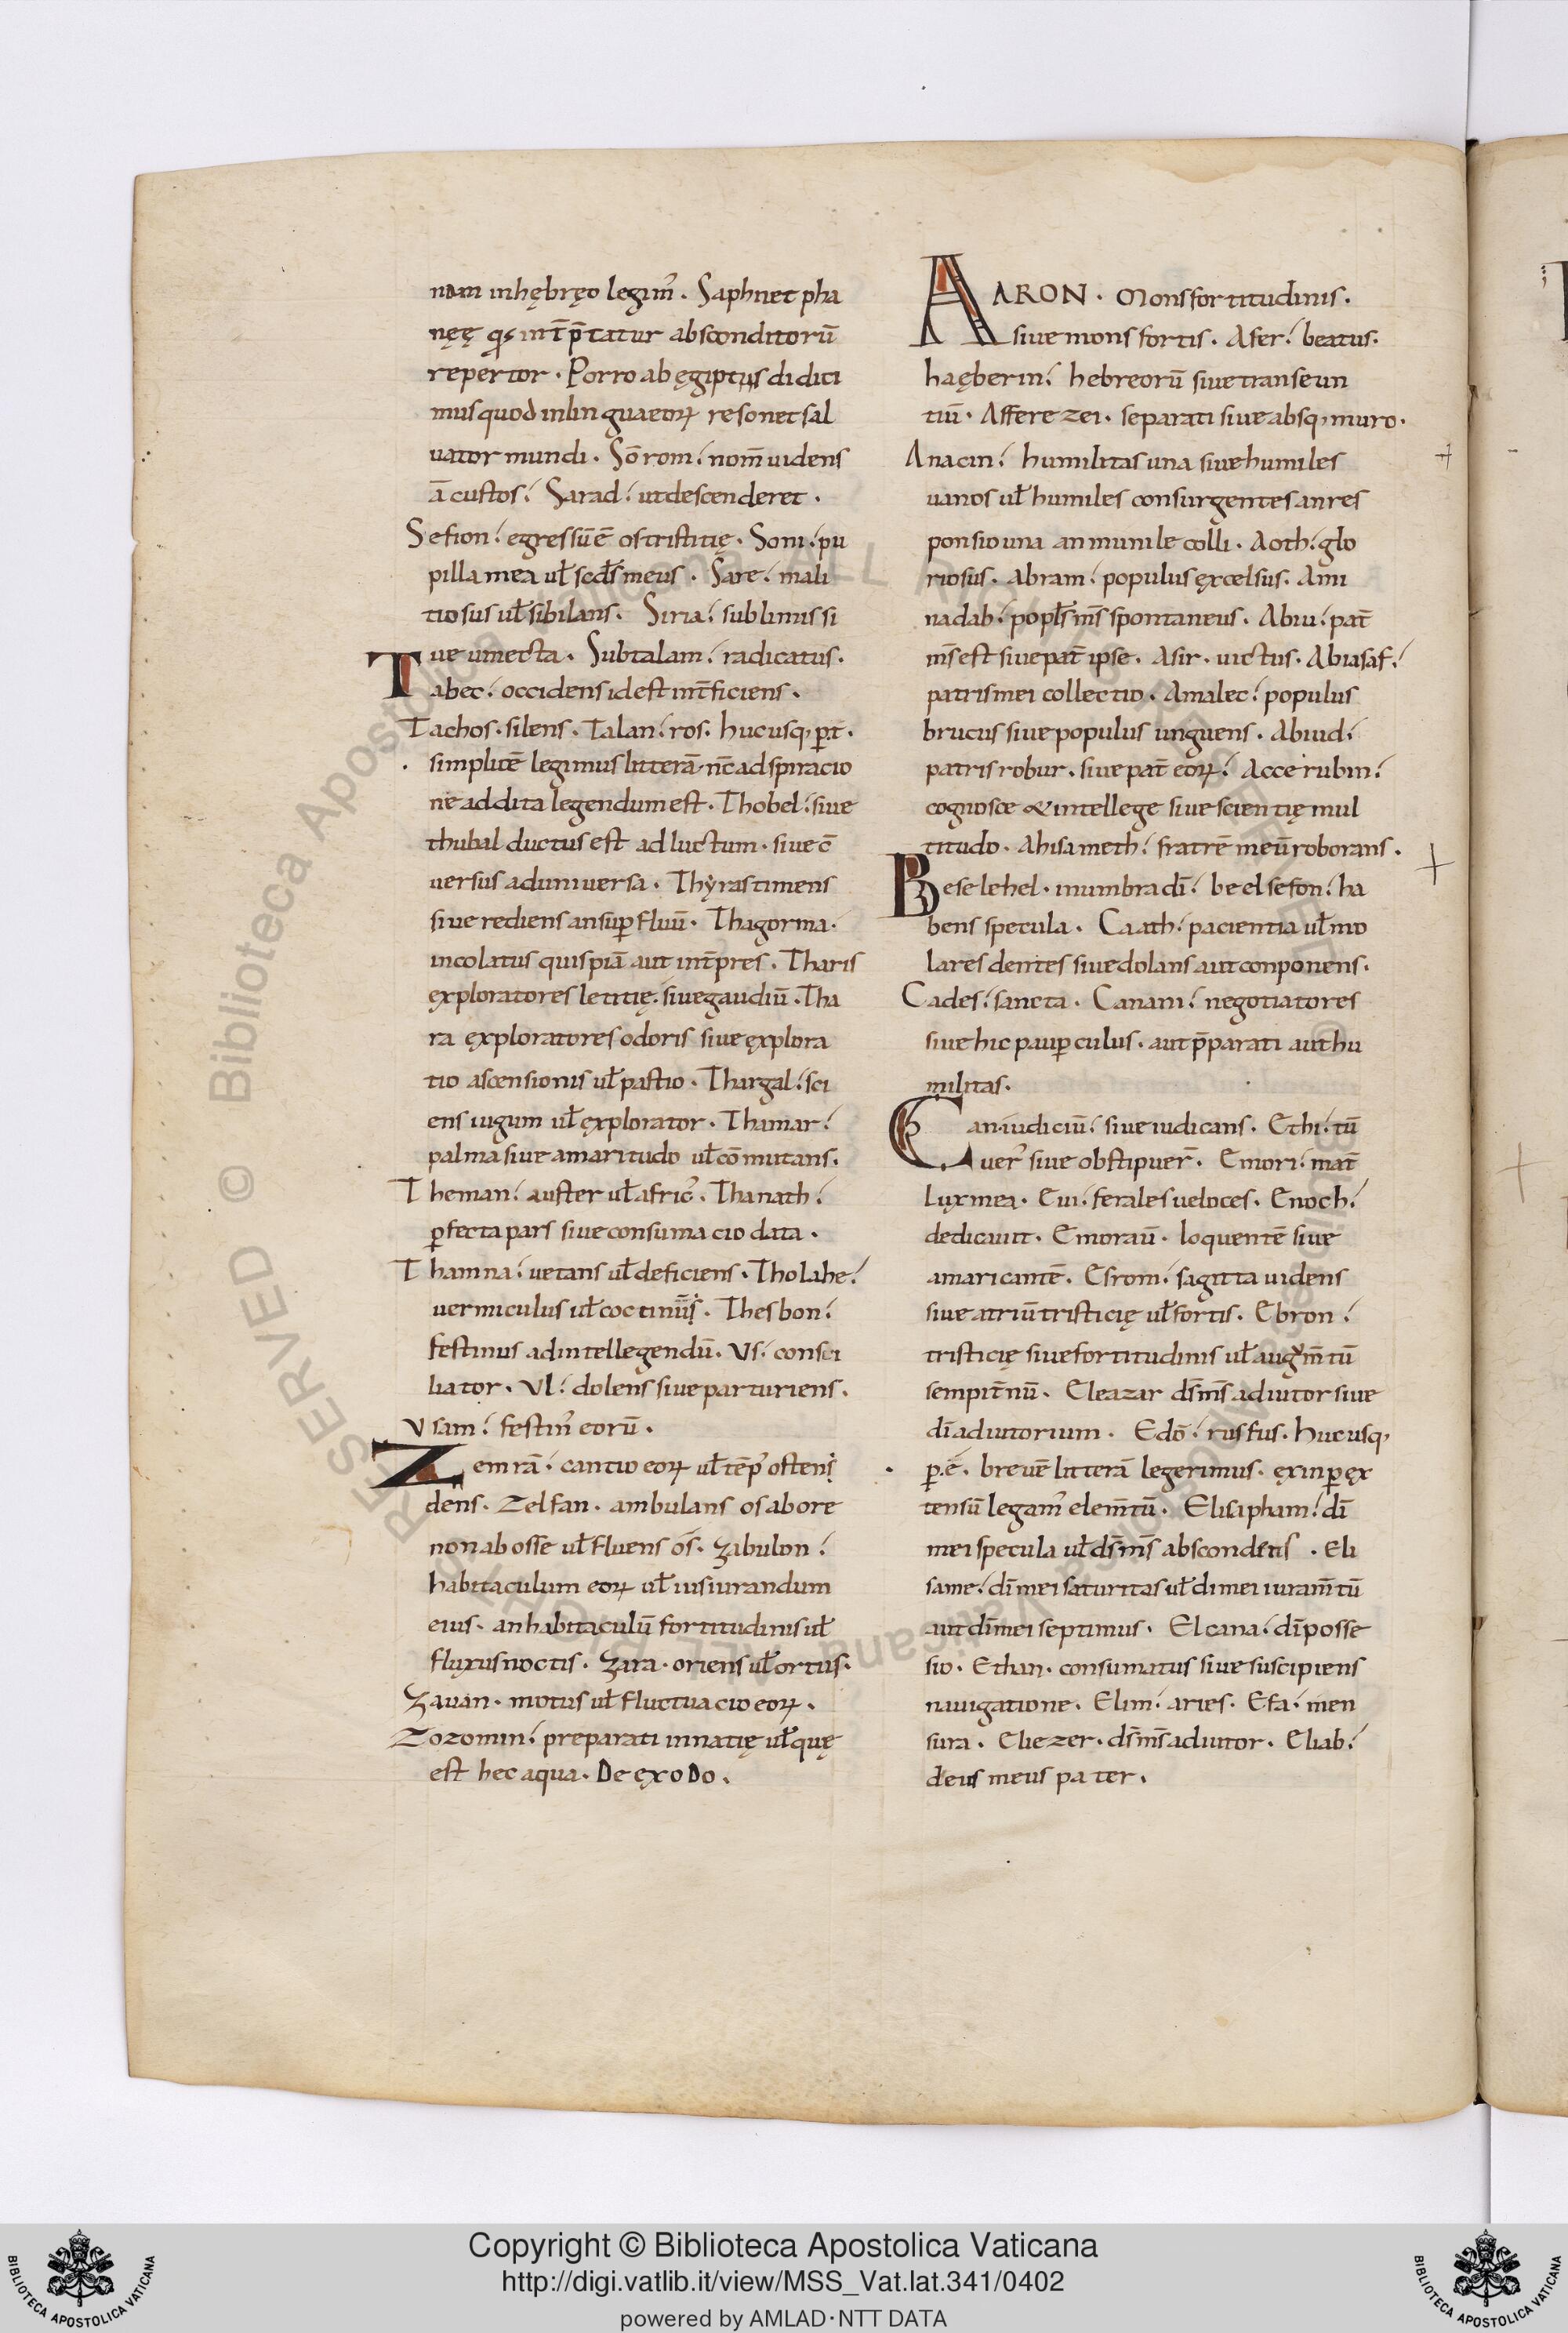 nam inhębręo legim᷒ . Saphnet pha
nęę qs int̄p̄tatur absconditorū
repertor . Porro ab ęgiptus didici
mus quod in linguaeoꝝ resonet sal
uator mundi . Sōrom: nom̄ uidens
ā custos: Sarad: ut descenderet .
Sefion: egressū ē os tristitię . Soni: pu
pilla mea uł scđs meus . Sare: mali
tiosus uł sibilans . Siria: sublimis si
ue umecta . Subtalam: radicatus .
Tabec: occidens id est int̄ficiens .
Tachos . silens . Talan: ros . hucusq; p̱.t̄ .
simplicē legimus litterā nc̄ adspiracio
ne addita legendum est . Thobel: siue
thubal ductus est ad luctum . siue c̄
uersus ad uniuersa . Thẏras timens
siue rediens an sup̱fluū . Thagorma .
incolatus quispiā aut int̄pres . Tharis
ęxploratores letitię: siue gaudiū . Tha
ra ęxploratores odoris siue ęxplora
tio ascensionis uł pastio . Thargal: sci
ens iugum uł ęxplorator . Thamar:
palma siue amaritudo uł cōmutans .
Theman: auster uł afric᷒ . Thanath:
p̱fecta pars siue consumacio data .
Thamna: uetans uł deficiens . Tholahe:
uermiculus uł coctinūs . Thesbon:
festinus ad intellegendū . Vs: consi
liator . Vl: dolens siue parturiens .
Vsam: festin᷒ eorū .
Zemrā: cantio eoꝝ uł tēp᷒ ostens
dens . Zelfan . ambulans os ab ore
non ab osse uł fluens ōs . Zabulon:
habitaculum eoꝝ uł iusiurandum
eius . an habitaculū fortitudinis uł
fluxus noctis . Zara . oriens uł ortus .
Zauan . motus uł fluctuacio eoꝝ .
Zozomin: preparati in natię uł quę
est hec aqua . De ęxoDo .
AARON . Mons fortitudinis .
siue mons fortis . Afer: beatus .
haęberin: hebreorū siue transeun
tiū . Afferezei . separati siue absq; muro .
Anacin: humilitas una siue humiles
uanos uł humiles consurgentes an res
ponsio una an munile colli . Aoth: glo
riosus . Abram: populus ęxcelsus . Ami
nadab: popłs m̄s spontaneus . Abiu: pat̄
m̄s est siue pat̄ ipse . Asir . uictus . Abiasaf:
patris mei collectio . Amalec: populus
brucus siue populus unguens . Abiud:
patris robur . siue pat̄ eoꝝ: Accerubin:
cognosce & intellege siue scientię mul
titudo . Ahisameth: fratrē meū roborans .
Beselehel . inumbra dī: beelsefon: ha
bens specula . Caath: paciencia uł mo
lares dentes siue dolans aut conponens .
Cades: sancta . Canani: negotiatores
siue hic paup̱culus . aut p̄parati aut hu
militas .
Can . iudiciū: siue iudicans . Ethi: tū
uer᷒ siue obstipuer̄ . Emori: mat̄
lux mea . Eui: ferales ueloces . Enoch:
dedicauit . Emoraū . loquentē siue
amaricantē . Esrom: sagitta uidens
siue atriū tristicię uł fortis . Ebron:
tristicię siue fortitudinis uł augm̄tū
sempit̄nū . Eleazar ds̄ m̄s adiutor siue
dī adiutorium . Edō: rusfus . hucusq;
p̱.ē . breuē litterā legerimus . ęxin p̱ ęx
tensū legam᷒ elem̄tū . Elisapham: dī
mei specula uł ds̄ m̄s abscondens . Eli
same: dī mei saturitas uł di mei iuram̄tū
aut dī mei septimus . Elcana: dī posse
sio . Ethan . consumatus siue suscipiens
nauigatione . Elim: aries . Efa: men
sura . Eliezer . ds̄ m̄s adiutor . Eliab:
deus meus pater .
Copyright © Biblioteca Apostolica Vaticana
http://digi.vatlib.it/view/MSS_Vat.lat.341/0402
powered by AMLAD·NTT DATA